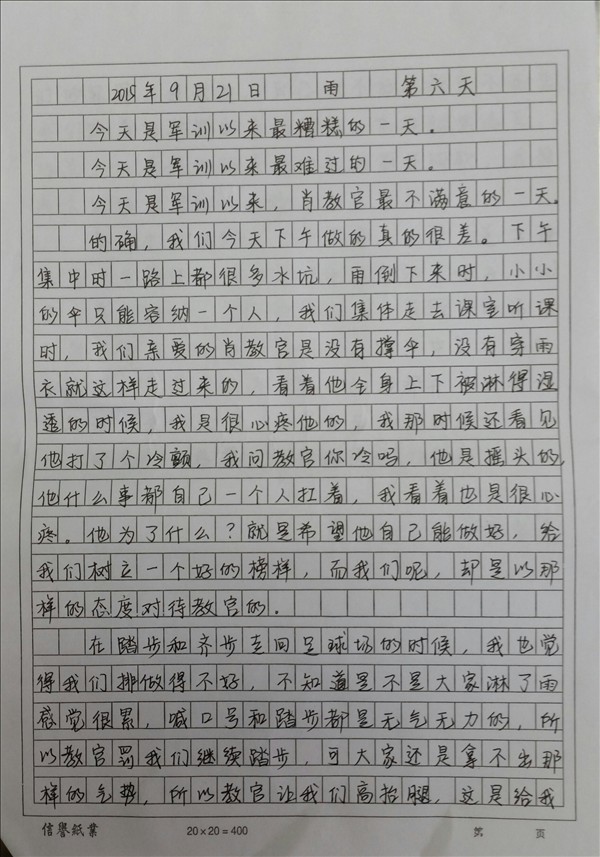 2015年9月21日 雨 第六天
今天是军训以来最糟糕的一天。
今天是军训以来最难过的一天。
今天是军训以来，肖教官最不满意的一天。
的确，我们今天下午做的真的很差。下午
集中时一路上都很多水坑，雨倒下来时，小小
的伞只能容纳一个人，我们集体走去课室听课
时，我们亲爱的肖教官是没有撑伞，没有穿雨
衣就这样走过来的，看着他全身上下被淋得湿
透的时候，我是很心疼他的，我那时候还看见
他打了个冷颤，我问教官你冷吗，他是摇头的，
他什么事都自己一个人扛着，我看着也是很心
疼。他为了什么？就是希望他自己能做好，给
我们树立一个好的榜样，而我们呢，却是以那
样的态度对待教官的．
在踏步和齐步走回足球场的时候，我也觉
得我们排做得不好，不知道是不是大家淋了雨
感觉很累，喊口号和踏步都是无气无力的，所
以教官罚我们继续踏步，可大家还是拿不出那
样的气势，所以教官让我们高抬腿，这是给我
信誉紙業 20×20=400 第 页